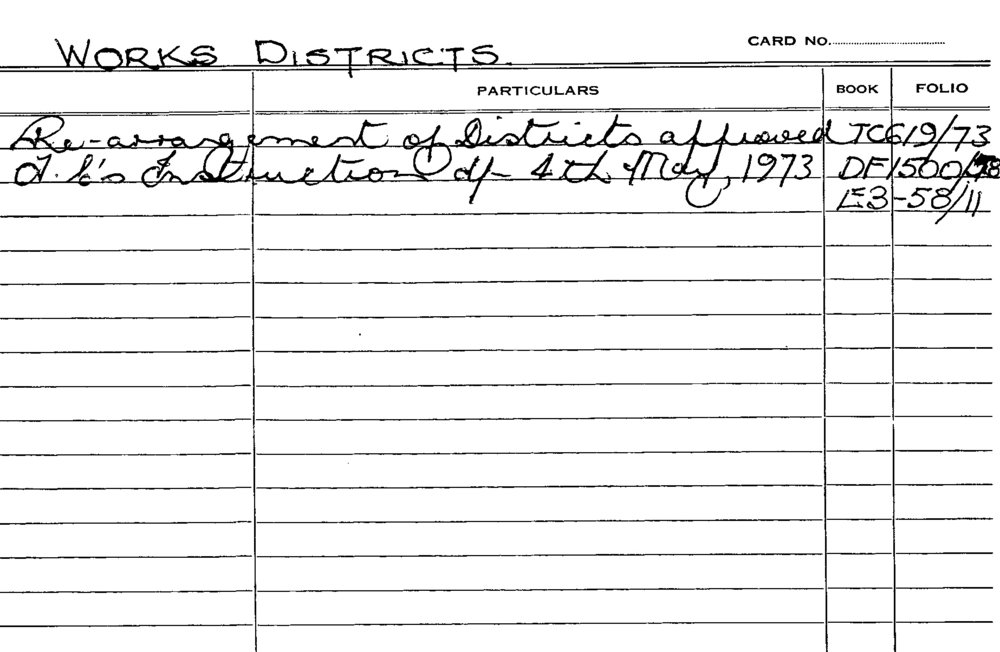 WORKS DISTRICTS.
CARD NO.
PARTICULARS BOOK FOLIO
Re-arrangement of Districts approved TC619/73
T.C's Instruction d/- 4th May, 1973 DF1500/
E3-58/11